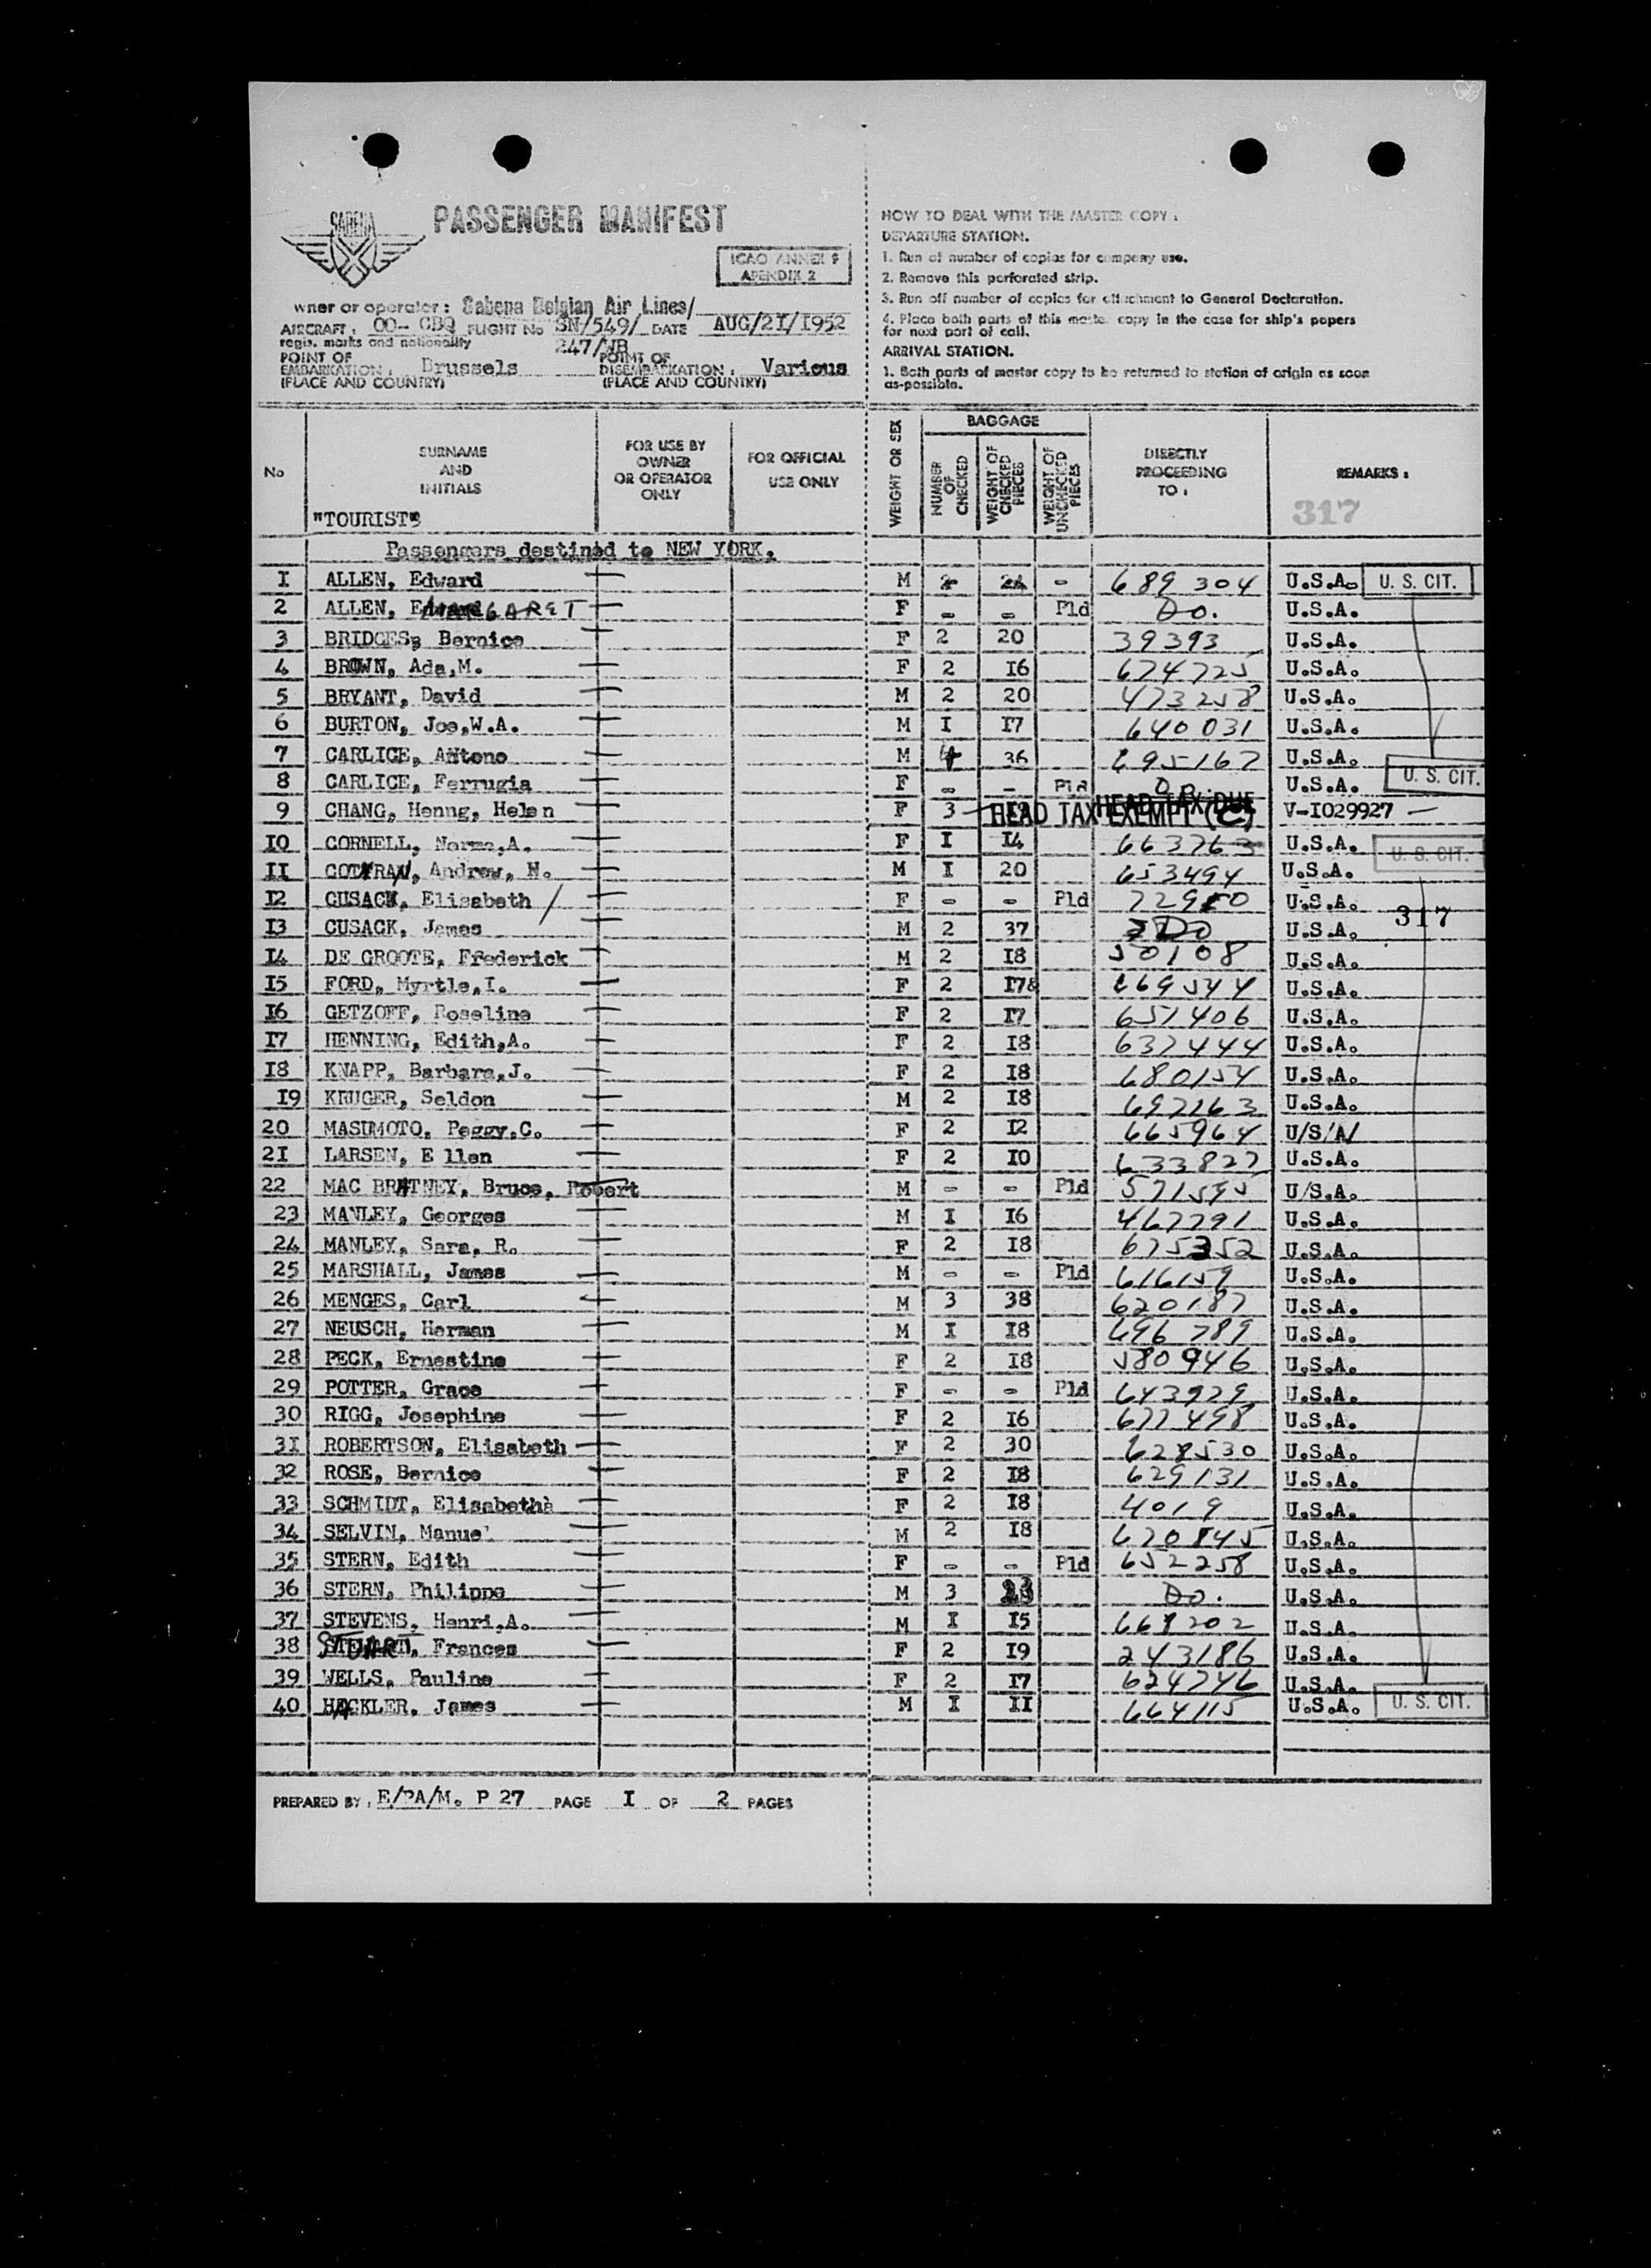 SABENA
PASSENGER MANIFEST
ICAO ANNEX 9
APENDIX 2
wner or operator : Sabena Belgian Air Lines/
AIRCRAFT : OO- CBQ FLIGHT No SN/549/ DATE AUG/2I/I952
regis. marks and nationality 247/WB
POINT OF EMBARKATION : Brussels POINT OF DISEMBARKATION : Various
(PLACE AND COUNTRY) (PLACE AND COUNTRY)
HOW TO DEAL WITH THE MASTER COPY :
DEPARTURE STATION.
1. Run of number of copies for company use.
2. Remove this perforated strip.
3. Run off number of copies for attachment to General Declaration.
4. Place both parts of this master copy in the case for ship's papers
for next port of call.
ARRIVAL STATION.
1. Both parts of master copy to be returned to station of origin as soon
as-possible.
No SURNAME AND INITIALS FOR USE BY OWNER OR OPERATOR ONLY FOR OFFICIAL USE ONLY WEIGHT OR SEX BAGGAGE NUMBER OF CHECKED WEIGHT OF CHECKED PIECES WEIGHT OF UNCHECKED PIECES DIRECTLY PROCEEDING TO : REMARKS :
"TOURIST" 317
Passengers destined to NEW YORK.
I ALLEN, Edward M 24 - 689 304 U.S.A. U. S. CIT.
2 ALLEN, MARGARET F - - Pld Do. U.S.A.
3 BRIDGES, Bernice F 2 20 39393 U.S.A.
4 BROWN, Ada,M. F 2 I6 674725 U.S.A.
5 BRYANT, David M 2 20 473258 U.S.A.
6 BURTON, Joe,W.A. M I I7 640031 U.S.A.
7 CARLICE, ANtono M 4 36 695167 U.S.A.
8 CARLICE, Ferrugia F - - Pld Do U.S.A. U. S. CIT.
9 CHANG, Henng, Helen F 3 HEAD TAX EXEMPT (C) HEAD TAX DUE V-I029927 -
I0 CORNELL, Norma,A. F I I4 663763 U.S.A. U. S. CIT.
II COTHRAN, Andrew, N. M I 20 653494 U.S.A.
I2 CUSACK, Elisabeth / F - - Pld 72980 U.S.A. 317
I3 CUSACK, James M 2 37 Do U.S.A.
I4 DE GROOTE, Frederick M 2 I8 50108 U.S.A.
I5 FORD, Myrtle,I. F 2 I78 669544 U.S.A.
I6 GETZOFF, Roseline F 2 I7 651406 U.S.A.
I7 HENNING, Edith,A. F 2 I8 637444 U.S.A.
I8 KNAPP, Barbara,J. F 2 I8 680154 U.S.A.
I9 KRUGER, Seldon M 2 I8 697163 U.S.A.
20 MASUMOTO, Peggy,C. F 2 I2 665964 U/S/A/
2I LARSEN, E llen F 2 I0 633827 U.S.A.
22 MAC BRATNEY, Bruce, Robert M - - Pld 571595 U/S.A.
23 MANLEY, Georges M I I6 467791 U.S.A.
24 MANLEY, Sara, R. F 2 I8 675352 U.S.A.
25 MARSHALL, James M - - Pld 616159 U.S.A.
26 MENGES, Carl M 3 38 620187 U.S.A.
27 NEUSCH, Herman M I I8 696 789 U.S.A.
28 PECK, Ernestine F 2 I8 580946 U.S.A.
29 POTTER, Grace F - - Pld 643929 U.S.A.
30 RIGG, Josephine F 2 I6 677498 U.S.A.
3I ROBERTSON, Elisabeth F 2 30 628530 U.S.A.
32 ROSE, Bernice F 2 I8 629131 U.S.A.
33 SCHMIDT, Elisabethà F 2 I8 4019 U.S.A.
34 SELVIN, Manuel M 2 I8 620845 U.S.A.
35 STERN, Edith F - - Pld 652258 U.S.A.
36 STERN, Philippe M 3 Do. U.S.A.
37 STEVENS, Henri,A. M I I5 668202 U.S.A.
38 STUART, Frances F 2 I9 243186 U.S.A.
39 WELLS, Pauline F 2 I7 624746 U.S.A.
40 HACKLER, James M I II 664115 U.S.A. U. S. CIT.
PREPARED BY : E/PA/M. P 27 PAGE I OF 2 PAGES